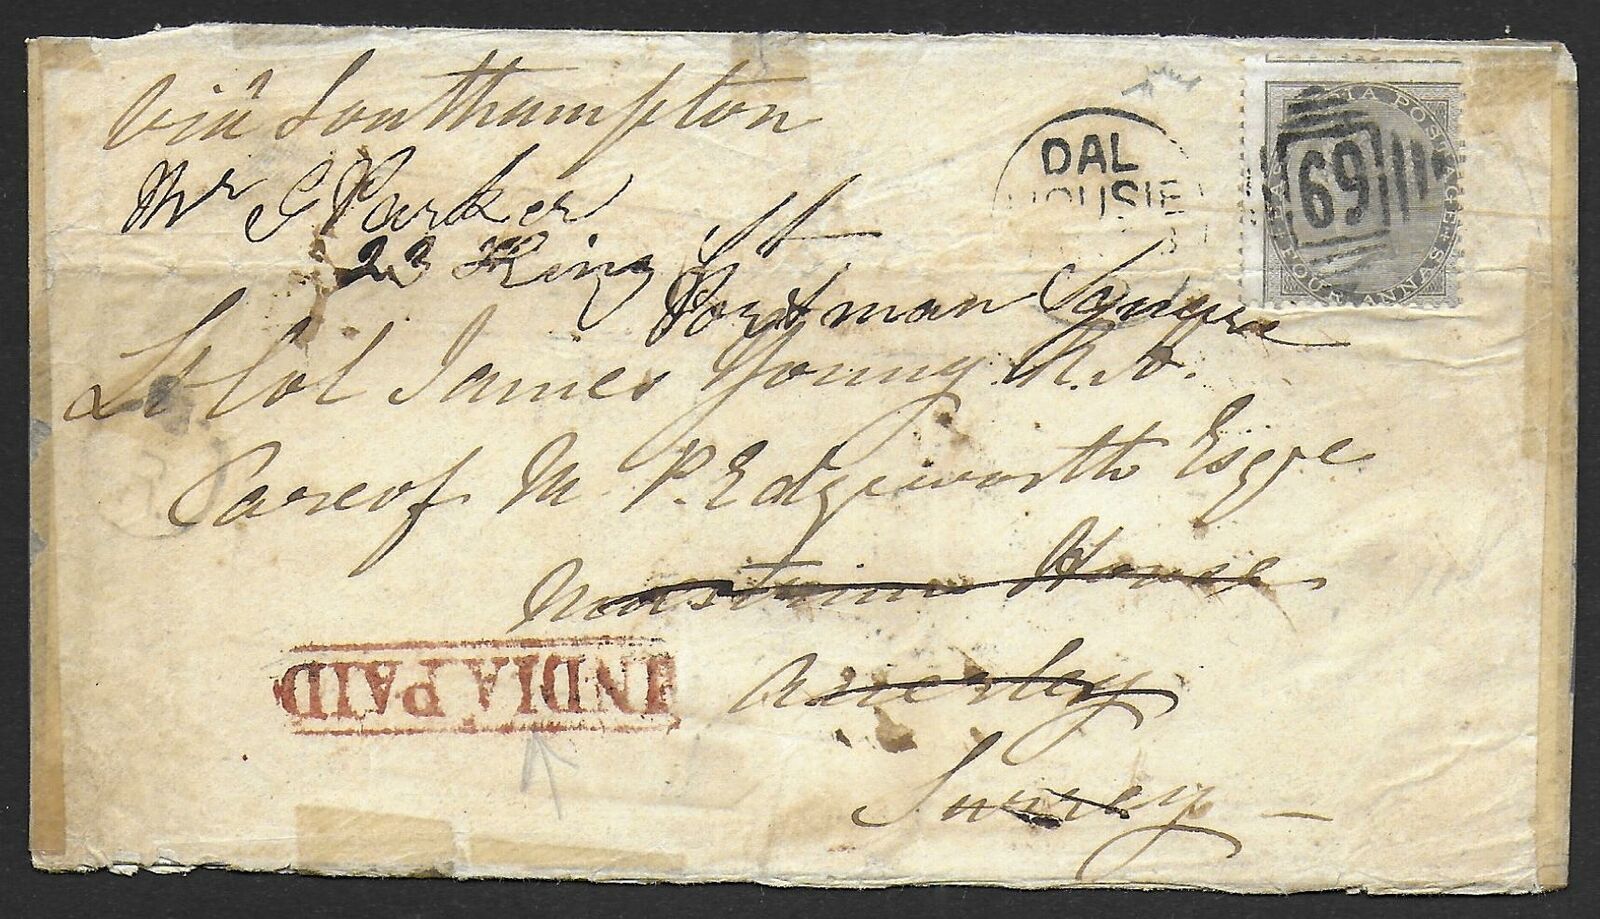 via Southampton
Mr G Parker
23 King St
Portman Square
Lt Col James Young R.A.
Care of M P. Edgeworth Esqre
Mastrim House
Anerley
Surrey
DAL
HOUSIE
EAST INDIA POSTAGE
FOUR ANNAS
69
INDIA PAID